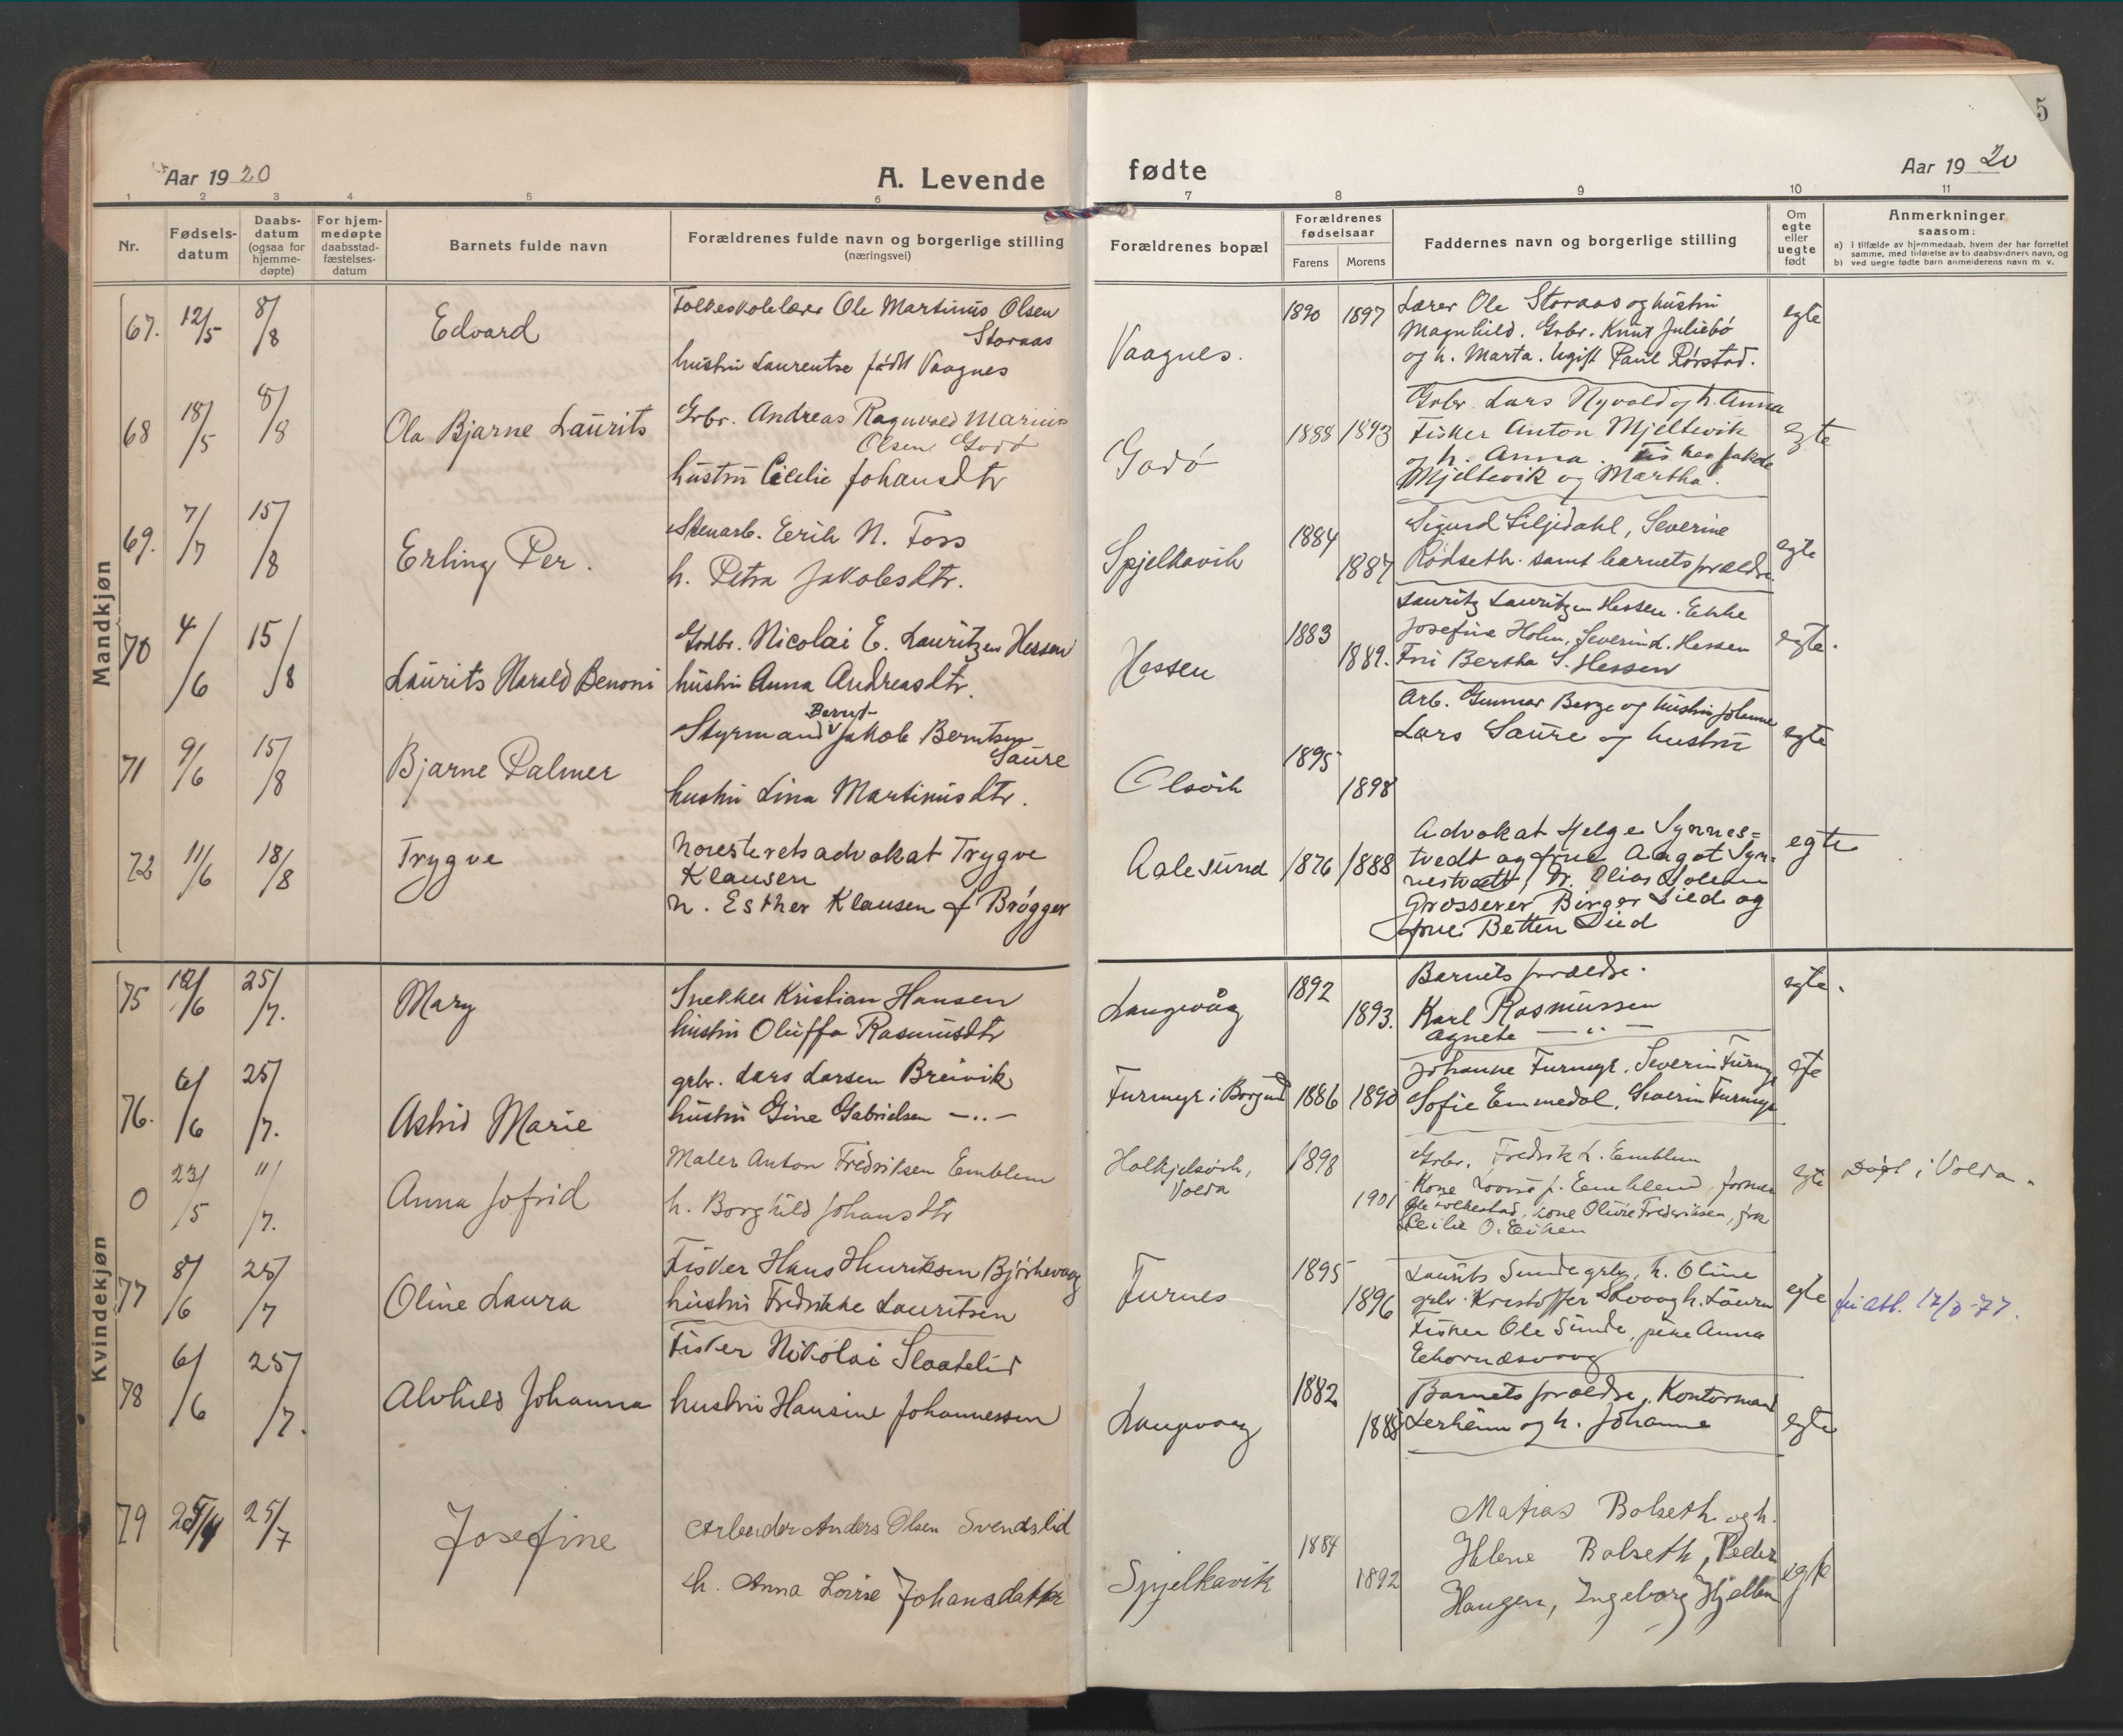 5
Aar 1920
A. Levende
fødte
Aar 1920
1 2 3 4 5 6 7 8 9 10 11
Nr.
Fødsels-
datum
Daabs-
datum
(ogsaa for
hjemme-
døpte)
For hjem-
medøpte
daabsstad-
fæstelses-
datum
Barnets fulde navn
Forældrenes fulde navn og borgerlige stilling
(næringsvei)
Forældrenes bopæl
Forældrenes
fødselsaar
Farens Morens
Faddernes navn og borgerlige stilling
Om
egte
eller
uegte
født
Anmerkninger
saasom:
a) i tilfælde av hjemmedaab, hvem der har forrettet
samme, med tilføielse av to daabsvidners navn, og
b) ved uegte fødte barn anmelderens navn m. v.
Mandkjøn
67. 12/5 8/8
Edvard
Folkeskolelærer Ole Martinus Olsen
Storaas
hustru Laurentse født Vaagnes
Vaagnes.
1890 1897
Lærer Ole Storaas og hustru
Magnhild. Grbr. Knut Juliebø
og h. Marta. Ugift Paul Rørstad.
egte
68 18/5 8/8
Ola Bjarne Laurits
Grbr. Andreas Ragnvald Marius
Olsen Godø
hustru Cecilie Johansdtr
Godø
1888 1893
Grbr. Lars Nyvold og h. Anna
Fisker Anton Mjeltevik
og h. Anna. Jakob
Mjeltevik og Martha.
egte
69. 7/7 15/8
Erling Per.
Stenarb. Eerik N. Foss
h. Petra Jakobsdtr.
Spjelkavik
1884
1887
Sigurd Liljedahl, Severine
Rødseth. samt barnets forældre
egte
70 4/6 15/8
Laurits Harald Benoni
Grdbr. Nicolai E. Lauritzen Hessen
hustru Anna Andreasdtr.
Hessen
1883
1889.
Lauritz Lauritzen Hessen. Enke
Josefine Holm, Severin L. Hessen
Fru Bertha S. Hessen
egte.
71 9/6 15/8
Bjarne Palmer
Bernt
Styrmand Jakob Berntsen
Saure
hustru Lina Martinusdtr.
Olsvik
1895
1898
Arb. Gunnar Berge og hustru Johanne
Lars Saure og hustru
egte
72 11/6 18/8
Trygve
Høiesteretsadvokat Trygve
Klausen
h. Esther Klausen f Brøgger
Aalesund
1876 1888
Advokat Helge Synnes=
tvedt og frue Aagot Syn-
nestvedt, Dr. Olias
Grosserer Birger Lied og
frue Betten Lied
egte
Kvindekjøn
75 12/6 25/7.
Mary
Snekker Kristian Hansen
hustru Oluffa Rasmusdtr
Langevåg
1892
1893.
Barnets forældre.
Karl Rasmussen
Agnete — " —
egte.
76. 6/6 25/7.
Astrid Marie
grbr. Lars Larsen Breivik
hustru Gine Gabrielsen — .. —
Furmyr i Borgund
1886 1890
Johanne Furmyr. Severin Furmyr
Sofie Emmedal. Severin Furmyr
egte
0 23/5 11/7.
Anna Jofrid
Maler Anton Fredriksen Emblem
h. Borghild Johansdtr
Holkjelsvik,
Volda
1898
1901
Grbr. Fredrik L. Emblem
Kone Lovise f. Emblem,
Folkestad, kone Olivie Fredriksen, frk
Cecilie O. Eiken
egte
Døpt i Volda.
77 8/6 25/7
Oline Laura
Fisker Hans Henriksen Bjørkevaag
hustru Fredrikke Lauritsen
Furnes
1895
1896
Laurits Sunde grbr, h. Oline
grbr. Kristoffer h. Laura
Fisker Ole Sunde, pike Anna
Eehornæsvaag
egte
78 6/6 25/7.
Alvhild Johanna
Fisker Nikolai Slaatelid
hustru Hansine Johannessen
Langevaag
1882
1885
Barnets forældre, Kontormand
Lerheim og h. Johanne
egte
79 25/4 25/7
Josefine
Arbeider Anders Olsen Svendslid
h. Anna Lovise Johansdatter
Spjelkavik
1884
1892
Matias Bolseth og h.
Helene Bolseth, Peder
Haugen, Ingeborg Hjellen
egte